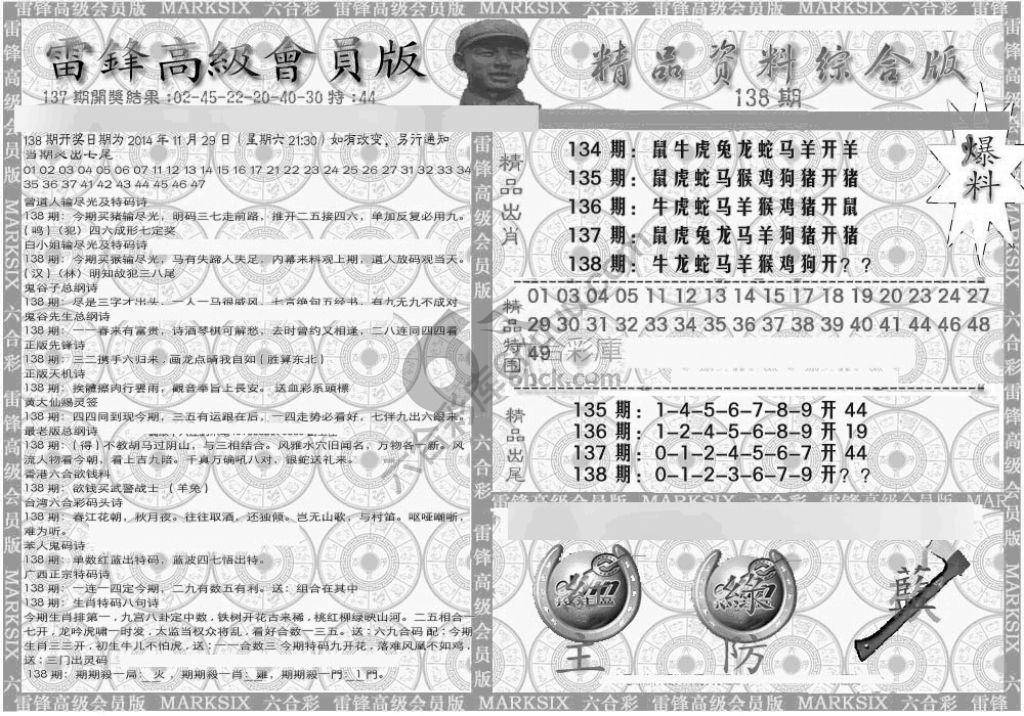 雷锋高级会员版 MARKSIX 六合彩 雷锋高级会员版 MARKSIX 六合彩 雷锋高级会员版 MARKSIX 六合彩 雷锋
雷鋒高級會員版
137期開獎結果:02-45-22-20-40-30特:44
精品資料綜合版
138期
爆料
138期开奖日期为2014年11月29日(星期六21:30)如有改变,另行通知
当期火出七尾
01 02 03 04 05 06 07 11 12 13 14 15 16 17 21 22 23 24 25 26 27 31 32 33 34
35 36 37 41 42 43 44 45 46 47
曾道人输尽光及特码诗
138期:今期买猪输尽光,明码三七走前路,推开二五接四六,单加反复必用九。
{鸣}(犯)四六成形七定奖
白小姐输尽光及特码诗
138期:今期买猴输尽光,马有失蹄人失足,内幕来料观上期,道人放码观当天。
{汉}(林)明知故犯三八尾
鬼谷子总纲诗
138期:尽是三字才出头,一人一马很威风,七言绝句五经书,有九无九不成对
鬼谷先生总纲诗
138期:一一春来有富贵,诗酒琴棋可解愁,去时曾约又相逢,二八连同四四看
正版先锋诗
138期:三二携手六归来,画龙点晴我自如{胜算东北}
正版天机诗
138期:挨體擦肉行雲雨,觀音奉旨上長安。送血彩系頭標
黄大仙赐灵签
138期:四四同到现今期,三五有运跟在后,一四走势必看好,七伴九出六跟来。
最老版总纲诗
138期:{得}不教胡马过阴山,与三相结合。风雅水穴旧闻名,万物各一新。风
流人物看今朝,看上吉九陪。千真万确吼八对,银蛇送礼来。
香港六合欲钱料
138期:欲钱买武警战士 {羊兔}
台湾六合彩码头诗
138期:春江花朝,秋月夜。往往取酒,还独倾。岂无山歌,与村笛。呕哑嘲哳,
难为听。
苯人鬼码诗
138期:单数红蓝出特码,蓝波四七悟出特。
广西正宗特码诗
138期:一连一四定今期,二九有数五有利。送:组合在其中
138期:生肖特码八句诗
今期生肖排第一,九宫八卦定中数,铁树开花古来稀,桃红柳绿映山河。二五相合一
七开,龙吟虎啸一时发,太监当权众将乱,看好合数一三五。送:六九合码 配:今期
生肖三三开,初生牛儿不怕虎,送:一一合数三 今期特码九开花,落难风凰不如鸡,
送:三门出灵码
138期:期期殺一局:火,期期殺一肖:雞,期期殺一門:1門。
精品出肖
134期:鼠牛虎兔龙蛇马羊开羊
135期:鼠虎蛇马猴鸡狗猪开猪
136期:牛虎蛇马羊猴鸡猪开鼠
137期:鼠虎兔龙马羊狗猪开猪
138期:牛龙蛇马羊猴鸡狗开??
精品特围
01 03 04 05 11 12 13 14 15 17 18 19 20 23 24 27
29 30 31 32 33 34 35 36 37 38 39 40 41 44 46 48
49
彩庫
精品出尾
135期:1-4-5-6-7-8-9开44
136期:1-2-4-5-6-8-9开19
137期:0-1-2-4-5-6-7开44
138期:0-1-2-3-6-7-9开??
主
防
藍
雷锋高级会员版 MARKSIX 六合彩 雷锋高级会员版 MARKSIX 六合彩 雷锋高级会员版 MARKSIX 六合彩 雷锋